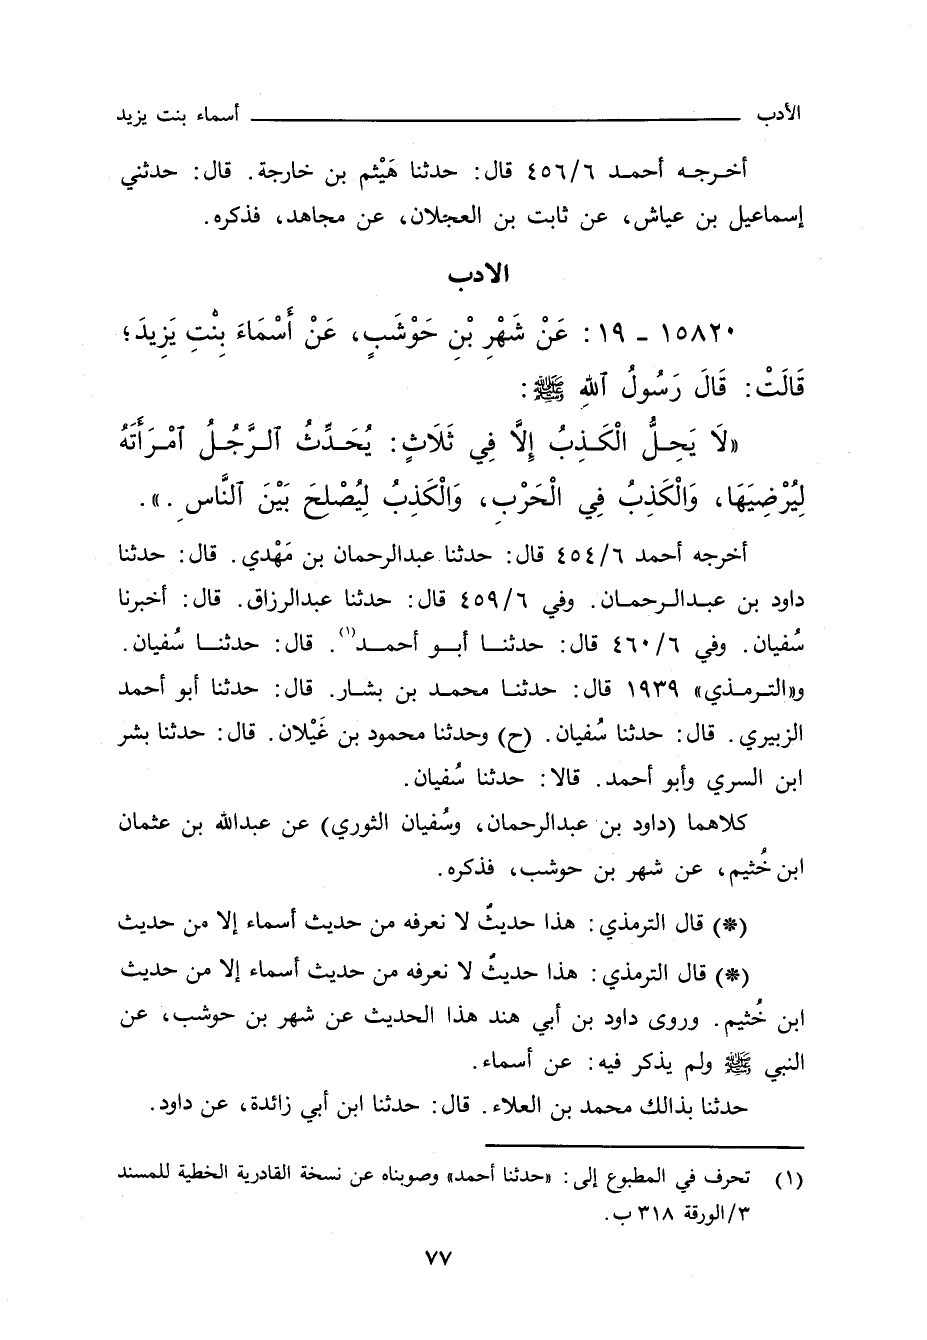 الأدب ــــــــــــــــ أسماء بنت يزيد
أخرجه أحمد ٤٥٦/٦ قال: حدثنا هَيْثم بن خارجة. قال: حدثني
إسماعيل بن عياش، عن ثابت بن العجلان، عن مجاهد، فذكره.
الادب
١٥٨٢٠ - ١٩: عَنْ شَهْرِ بْنِ حَوْشَبٍ، عَنْ أَسْمَاءَ بِنْتِ يَزِيدَ؛
قَالَتْ: قَالَ رَسُولُ ٱللهِ ﷺ:
«لَا يَحِلُّ الْكَذِبُ إِلَّا فِي ثَلَاثٍ: يُحَدِّثُ ٱلرَّجُلُ ٱمْرَأَتَهُ
لِيُرْضِيَهَا، وَالْكَذِبُ فِي الْحَرْبِ، وَالْكَذِبُ لِيُصْلِحَ بَيْنَ ٱلنَّاسِ.».
أخرجه أحمد ٤٥٤/٦ قال: حدثنا عبدالرحمان بن مَهْدي. قال: حدثنا
داود بن عبدالرحمان. وفي ٤٥٩/٦ قال: حدثنا عبدالرزاق. قال: أخبرنا
سُفيان. وفي ٤٦٠/٦ قال: حدثنا أبو أحمد(١). قال: حدثنا سُفيان.
و«الترمذي» ١٩٣٩ قال: حدثنا محمد بن بشار. قال: حدثنا أبو أحمد
الزبيري. قال: حدثنا سُفيان. (ح) وحدثنا محمود بن غَيْلان. قال: حدثنا بشر
ابن السري وأبو أحمد. قالا: حدثنا سُفيان.
كلاهما (داود بن عبدالرحمان، وسُفيان الثوري) عن عبدالله بن عثمان
ابن خُثيم، عن شهر بن حوشب، فذكره.
(*) قال الترمذي: هذا حديثٌ لا نعرفه من حديث أسماء إلا من حديث
(*) قال الترمذي: هذا حديثٌ لا نعرفه من حديث أسماء إلا من حديث
ابن خُثيم. وروى داود بن أبي هند هذا الحديث عن شهر بن حوشب، عن
النبي ﷺ ولم يذكر فيه: عن أسماء.
حدثنا بذالك محمد بن العلاء. قال: حدثنا ابن أبي زائدة، عن داود.
(١) تحرف في المطبوع إلى: «حدثنا أحمد» وصوبناه عن نسخة القادرية الخطية للمسند
٣/الورقة ٣١٨ ب.
٧٧